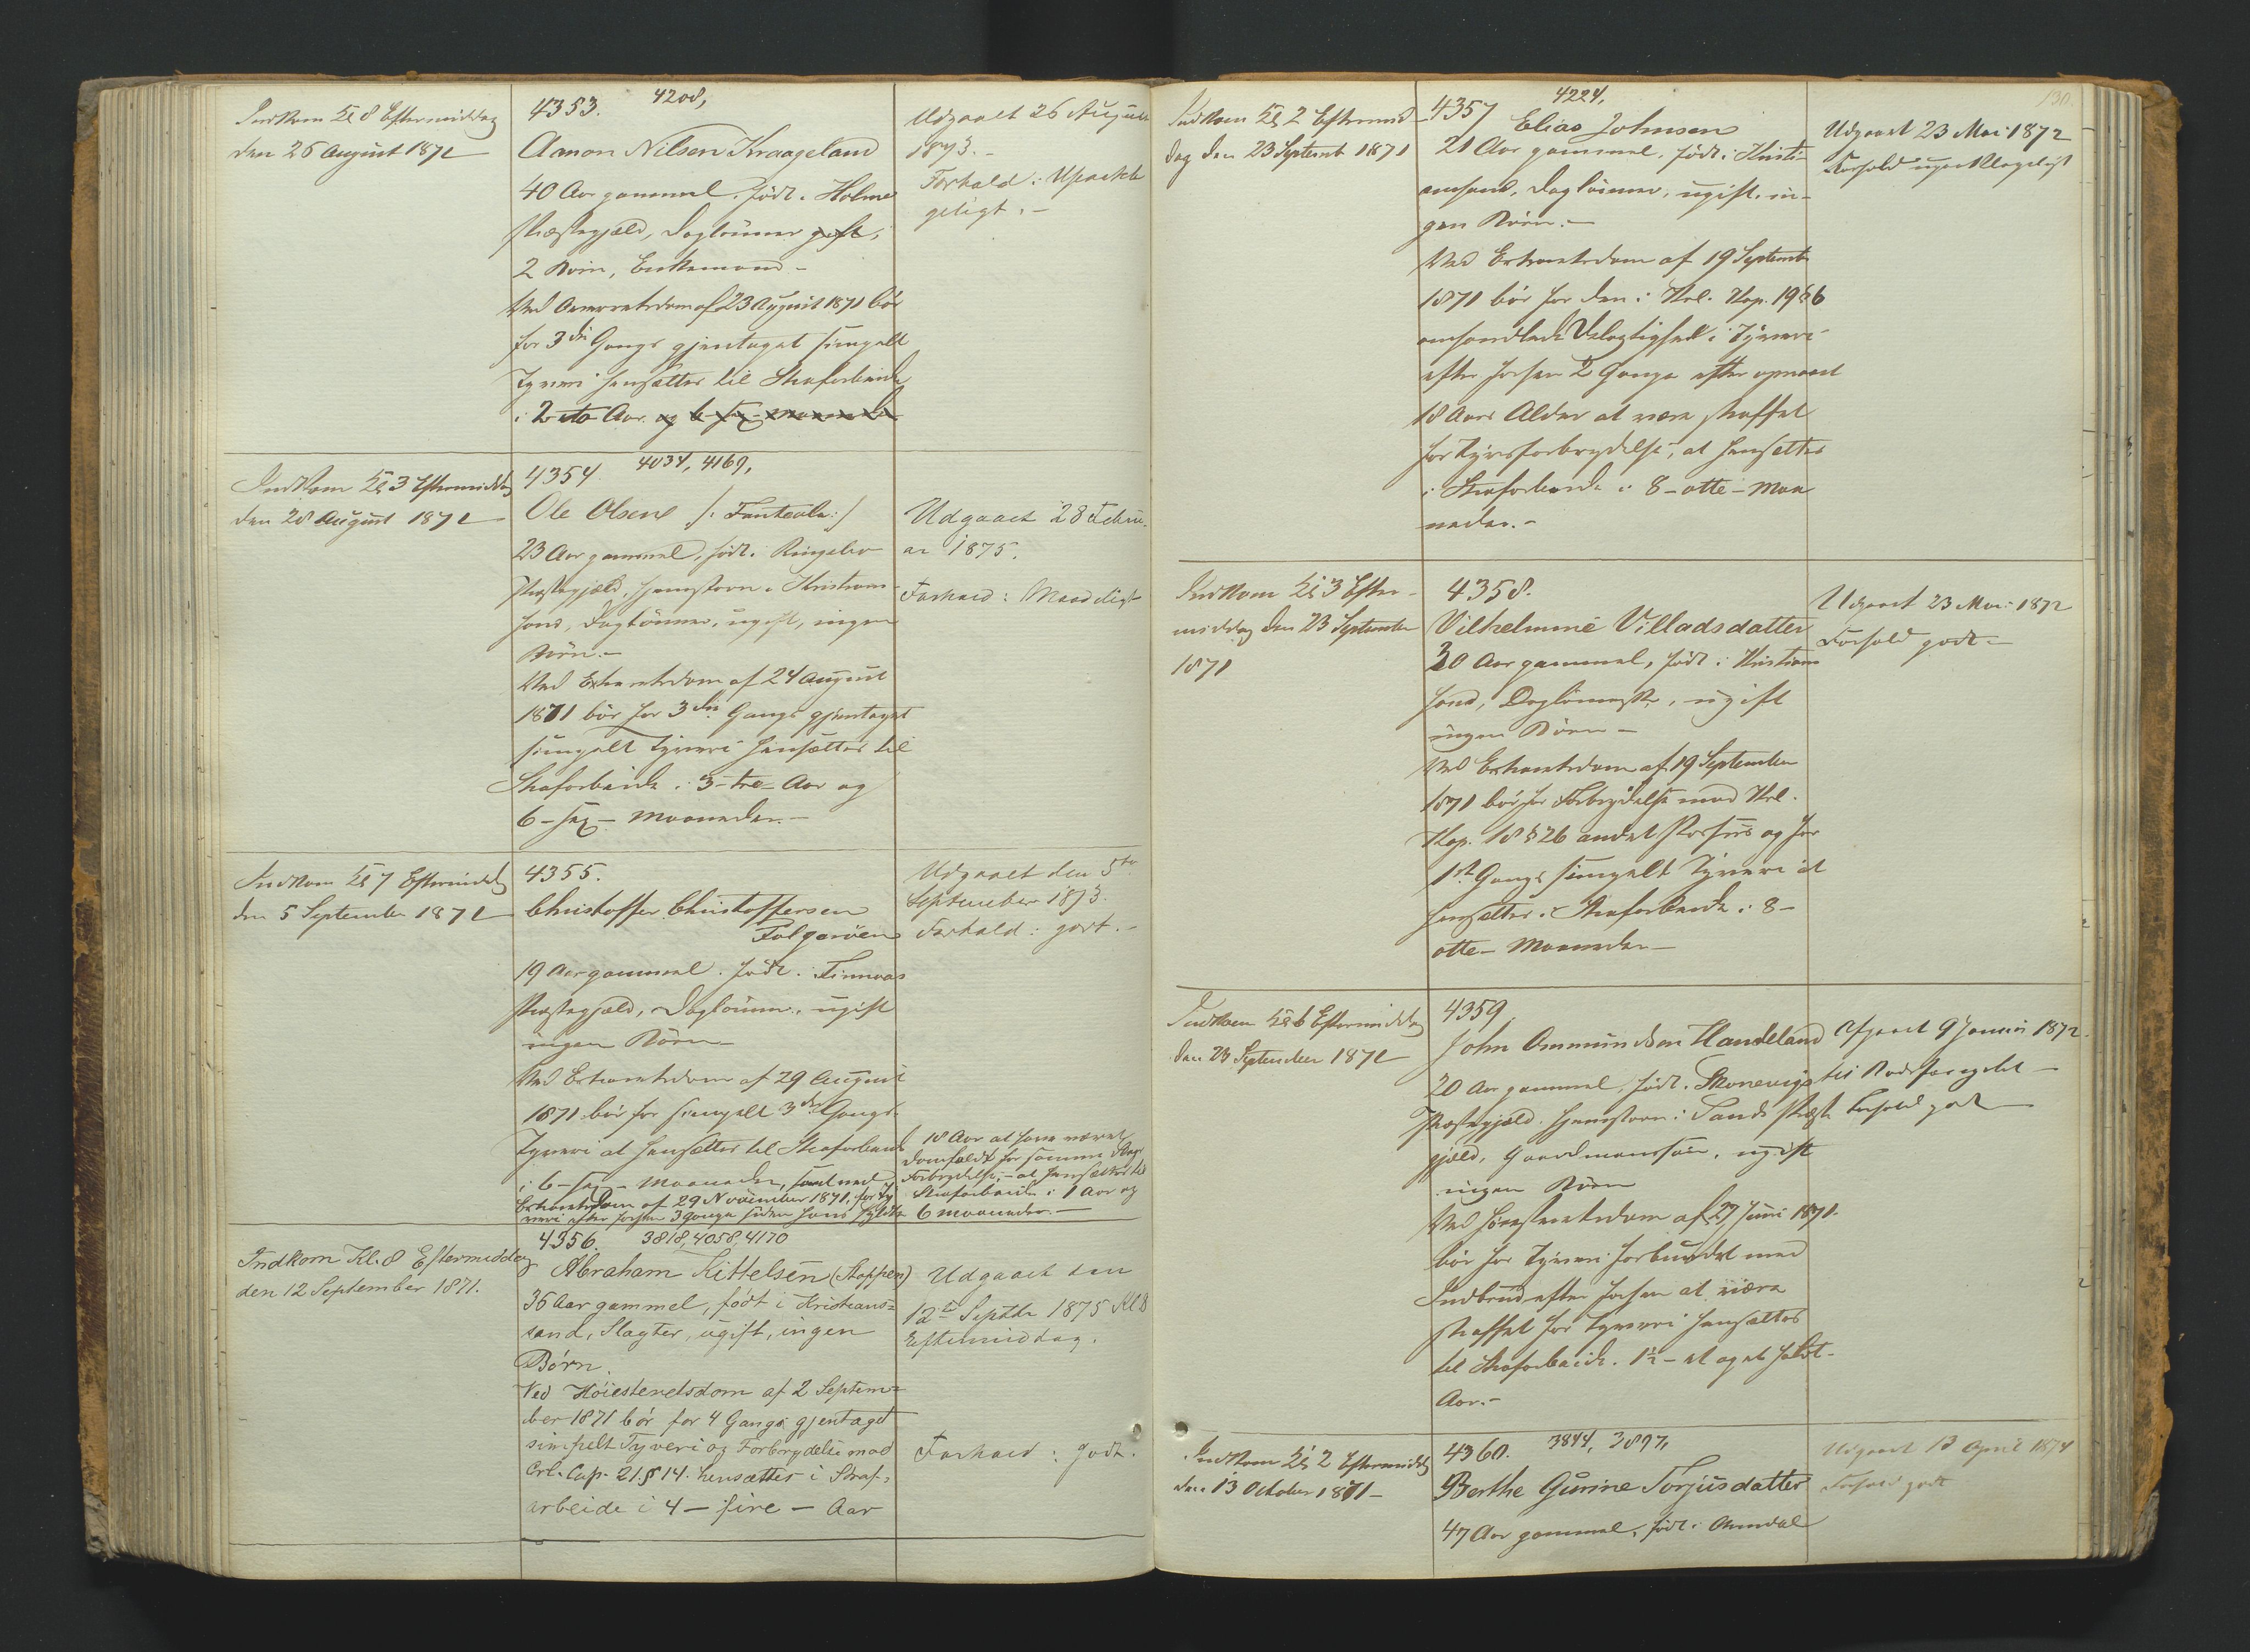 Indkom Kl 8 Eftermiddag
den 26 August 1871
4353. 4208,
Aanon Nilsen Kraageland
40 Aar gammel. født i Holme
Præstegjæld, Daglönner gift,
2 Börn, Enkemand –
Ved Overretsdom af 23 August 1871 bör
for 3die Gangs gjentaget simpelt
Tyveri hensættes til Strafarbeide
i 2 to Aar og 6 sex Maaneder
Udgaaet 26 August
1873. –
Forhold: Upaakla
geligt. –
Indkom Kl 3 Eftermiddag
den 28 August 1871
4354 4034, 4169,
Ole Olsen /: Fanteola :/
23 Aar gammel, født i Ringebo
Præstegjæld, hjemstavn i Kristian-
sand, Daglönner, ugift, ingen
Börn. –
Ved Extraretsdom af 24 August
1871 bör for 3die Gangs gjentaget
simpelt Tyveri hensættes til
Strafarbeide i 3 – tre – Aar og
6 – sex – Maaneder. –
Udgaaet 28 Febru-
ar 1875.
Forhold: Maadeligt
Indkom Kl 7 Eftermiddag
den 5 September 1871
4355.
Christoffer Christoffersen
Folgeröen
19 Aar gammel. født i Finnaas
Præstegjæld, Daglönner, ugift
ingen Börn –
Ved Extraretsdom af 29 August
1871 bör for simpelt 3die Gangs
Tyveri at hensættes til Strafarbeide
i 6 – sex – Maaneder, samt ved
Extraretsdom af 29 November 1871, for Ty
veri efter forhen 3 Gange siden hans fyldte
18 Aar at have været
domfældt for samme Slags
Forbrydelse, – at hensættes til
Strafarbeide i 1 Aar og
6 Maaneder. –
Udgaaet den 5te
September 1873.
Forhold: godt. –
Indkom Kl. 8 Eftermiddag
den 12 September 1871.
4356. 3818, 4058, 4170
Abraham Kittelsen (Stoppen)
36 Aar gammel, født i Kristians=
sand, Slagter, ugift, ingen
Börn.
Ved Höiesteretsdom af 2 Septem=
ber 1871 bör for 4 Gangs gjentaget
simpelt Tyveri og Forbrydelse mod
Crl. Cap. 21 § 14. hensættes i Straf=
arbeide i 4 – fire – Aar
Udgaaet den
12te Septbr 1875 Kl 8
Eftermiddag.
Forhold: godt.
130.
Indkom Kl 2 Eftermid-
dag den 23 Septemb 1871
4357 4224,
Elias Johnsen
21 Aar gammel. født i Kristi-
ansand, Daglönner, ugift, in-
gen Börn. –
Ved Extraretsdom af 19 Septemb
1871 bör for den i Krl. Kap. 19 § 6
omhandlede Delagtighed i Tyveri
efter forhen 2 Gange efter opnaaet
18 Aars Alder at være straffet
for Tyvsforbrydelse, at hensættes
i Strafarbeide i 8 – otte – Maa
neder. –
Udgaaet 23 Mai 1872
Forhold upaaklageligt
Indkom Kl 3 Efter-
middag den 23 September
1871
4358.
Vilhelmine Villadsdatter
30 Aar gammel, født i Kristian
sand, Daglönnerske, ugift
ingen Börn –
Ved Extraretsdom af 19 September
1871 bör for Forbrydelse mod Krl.
Kap. 18 § 26 andet Passus og for
1ste Gangs simpelt Tyveri at
hensættes i Strafarbeide i 8 –
otte – Maaneder –
Udgaaet 23 Mai 1872
Forhold godt –
Indkom Kl 6 Eftermiddag
den 23 September 1871
4359,
John Ommundsen Handeland
20 Aar gammel, født i Skonevigs
Præstegjæld. hjemstavn i Sands Præste
gjæld, Gaardmandssön, ugift
ingen Börn
Ved Höiesteretsdom af 27 Juni 1871
bör for Tyveri forbundet med
Indbrud efter forhen at være
straffet for Tyveri hensættes
til Strafarbeide. 1½ – et og et halvt –
Aar. –
Afgaaet 9 Januar 1872
til Bodsfængslet –
Forhold godt
Indkom Kl 2 Eftermiddag
den 13 October 1871 –
4360. 3844, 3897,
Berthe Gurine Torjusdatter
47 Aar gammel, født i Arendal
Udgaaet 13 April 1874
Forhold godt